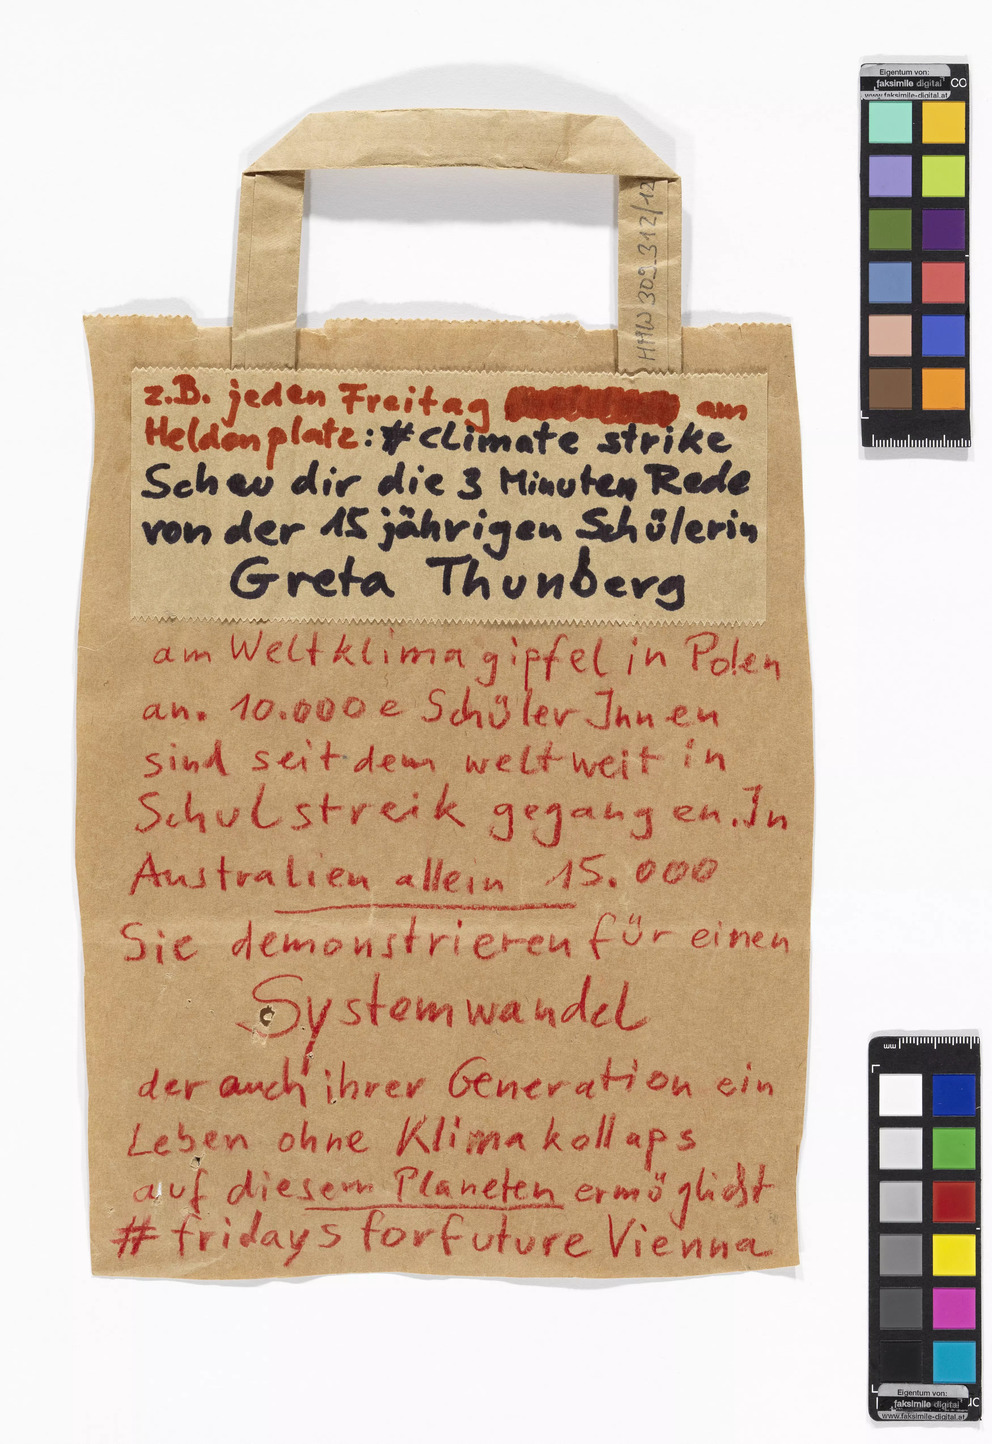 Eigentum von:
faksimile digital CO
www.faksimile-digital.at
HMW 309312/12
z.B. jeden Freitag am
Heldenplatz: #climate strike
Scheu dir die 3 Minuten Rede
von der 15 jährigen Schülerin
Greta Thunberg
am Weltklimagipfel in Polen
an. 10.000e SchülerInnen
sind seitdem weltweit in
Schulstreik gegangen. In
Australien allein 15.000
Sie demonstrieren für einen
Systemwandel
der auch ihrer Generation ein
Leben ohne Klimakollaps
auf diesem Planeten ermöglicht
#fridaysforfuture Vienna
Eigentum von:
faksimile digital
www.faksimile-digital.at